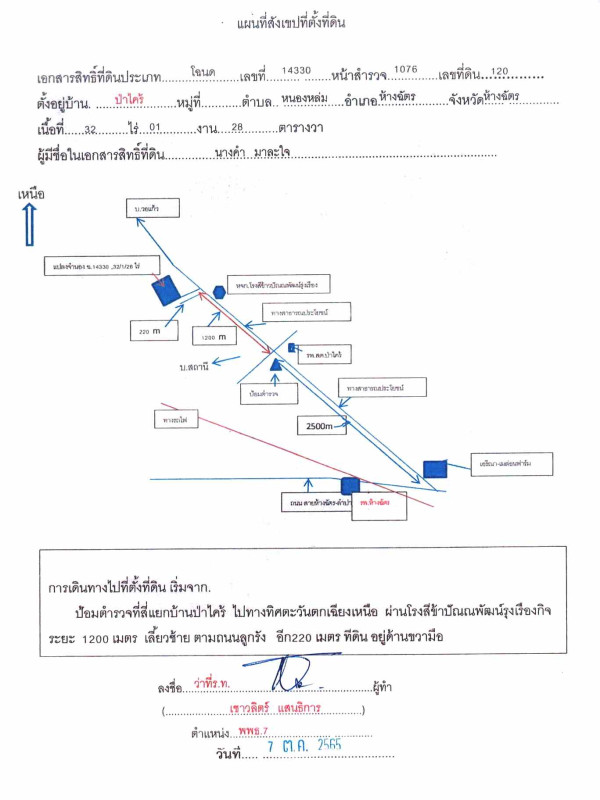 แผนที่สังเขปที่ตั้งที่ดิน
เอกสารสิทธิ์ที่ดินประเภท.......โฉนด.......เลขที่....14330....หน้าสำรวจ..1076....เลขที่ดิน...120..........
ตั้งอยู่บ้าน. ป่าไคร้ ......หมู่ที่...........ตำบล.. หนองหล่ม ...อำเภอห้างฉัตร........จังหวัดห้างฉัตร.......
เนื้อที่.....32.......ไร่ ...01.......งาน....28.......ตารางวา
ผู้มีชื่อในเอกสารสิทธิ์ที่ดิน............นางคำ มาละใจ..........................................
เหนือ
บ.วอแก้ว
แปลงจำนอง ฉ.14330 ,32/1/28 ไร่
หจก.โรงสีข้าวปัณณพัฒน์รุ่งเรือง
ทางสาธารณประโยชน์
220 m
1200 m
รพ.สต.ป่าไคร้
บ.สถานี
ป้อมตำรวจ
ทางสาธารณประโยชน์
ทางรถไฟ
2500m
ถนน สายห้างฉัตร-ลำปา
รพ.ห้างฉัตร
การเดินทางไปที่ตั้งที่ดิน เริ่มจาก.
ป้อมตำรวจที่สี่แยกบ้านป่าไคร้ ไปทางทิศตะวันตกเฉียงเหนือ ผ่านโรงสีข้าปัณณพัฒน์รุงเรืองกิจ
ระยะ 1200 เมตร เลี้ยวซ้าย ตามถนนลูกรัง อีก220 เมตร ที่ดิน อยู่ด้านขวามือ
ลงชื่อ...ว่าที่ร.ท.......................................ผู้ทำ
(..................เชาวลิตร์ แสนธิการ............)
ตำแหน่ง...พพธ.7..............................
วันที่..... 7 ต.ค. 2565 ................